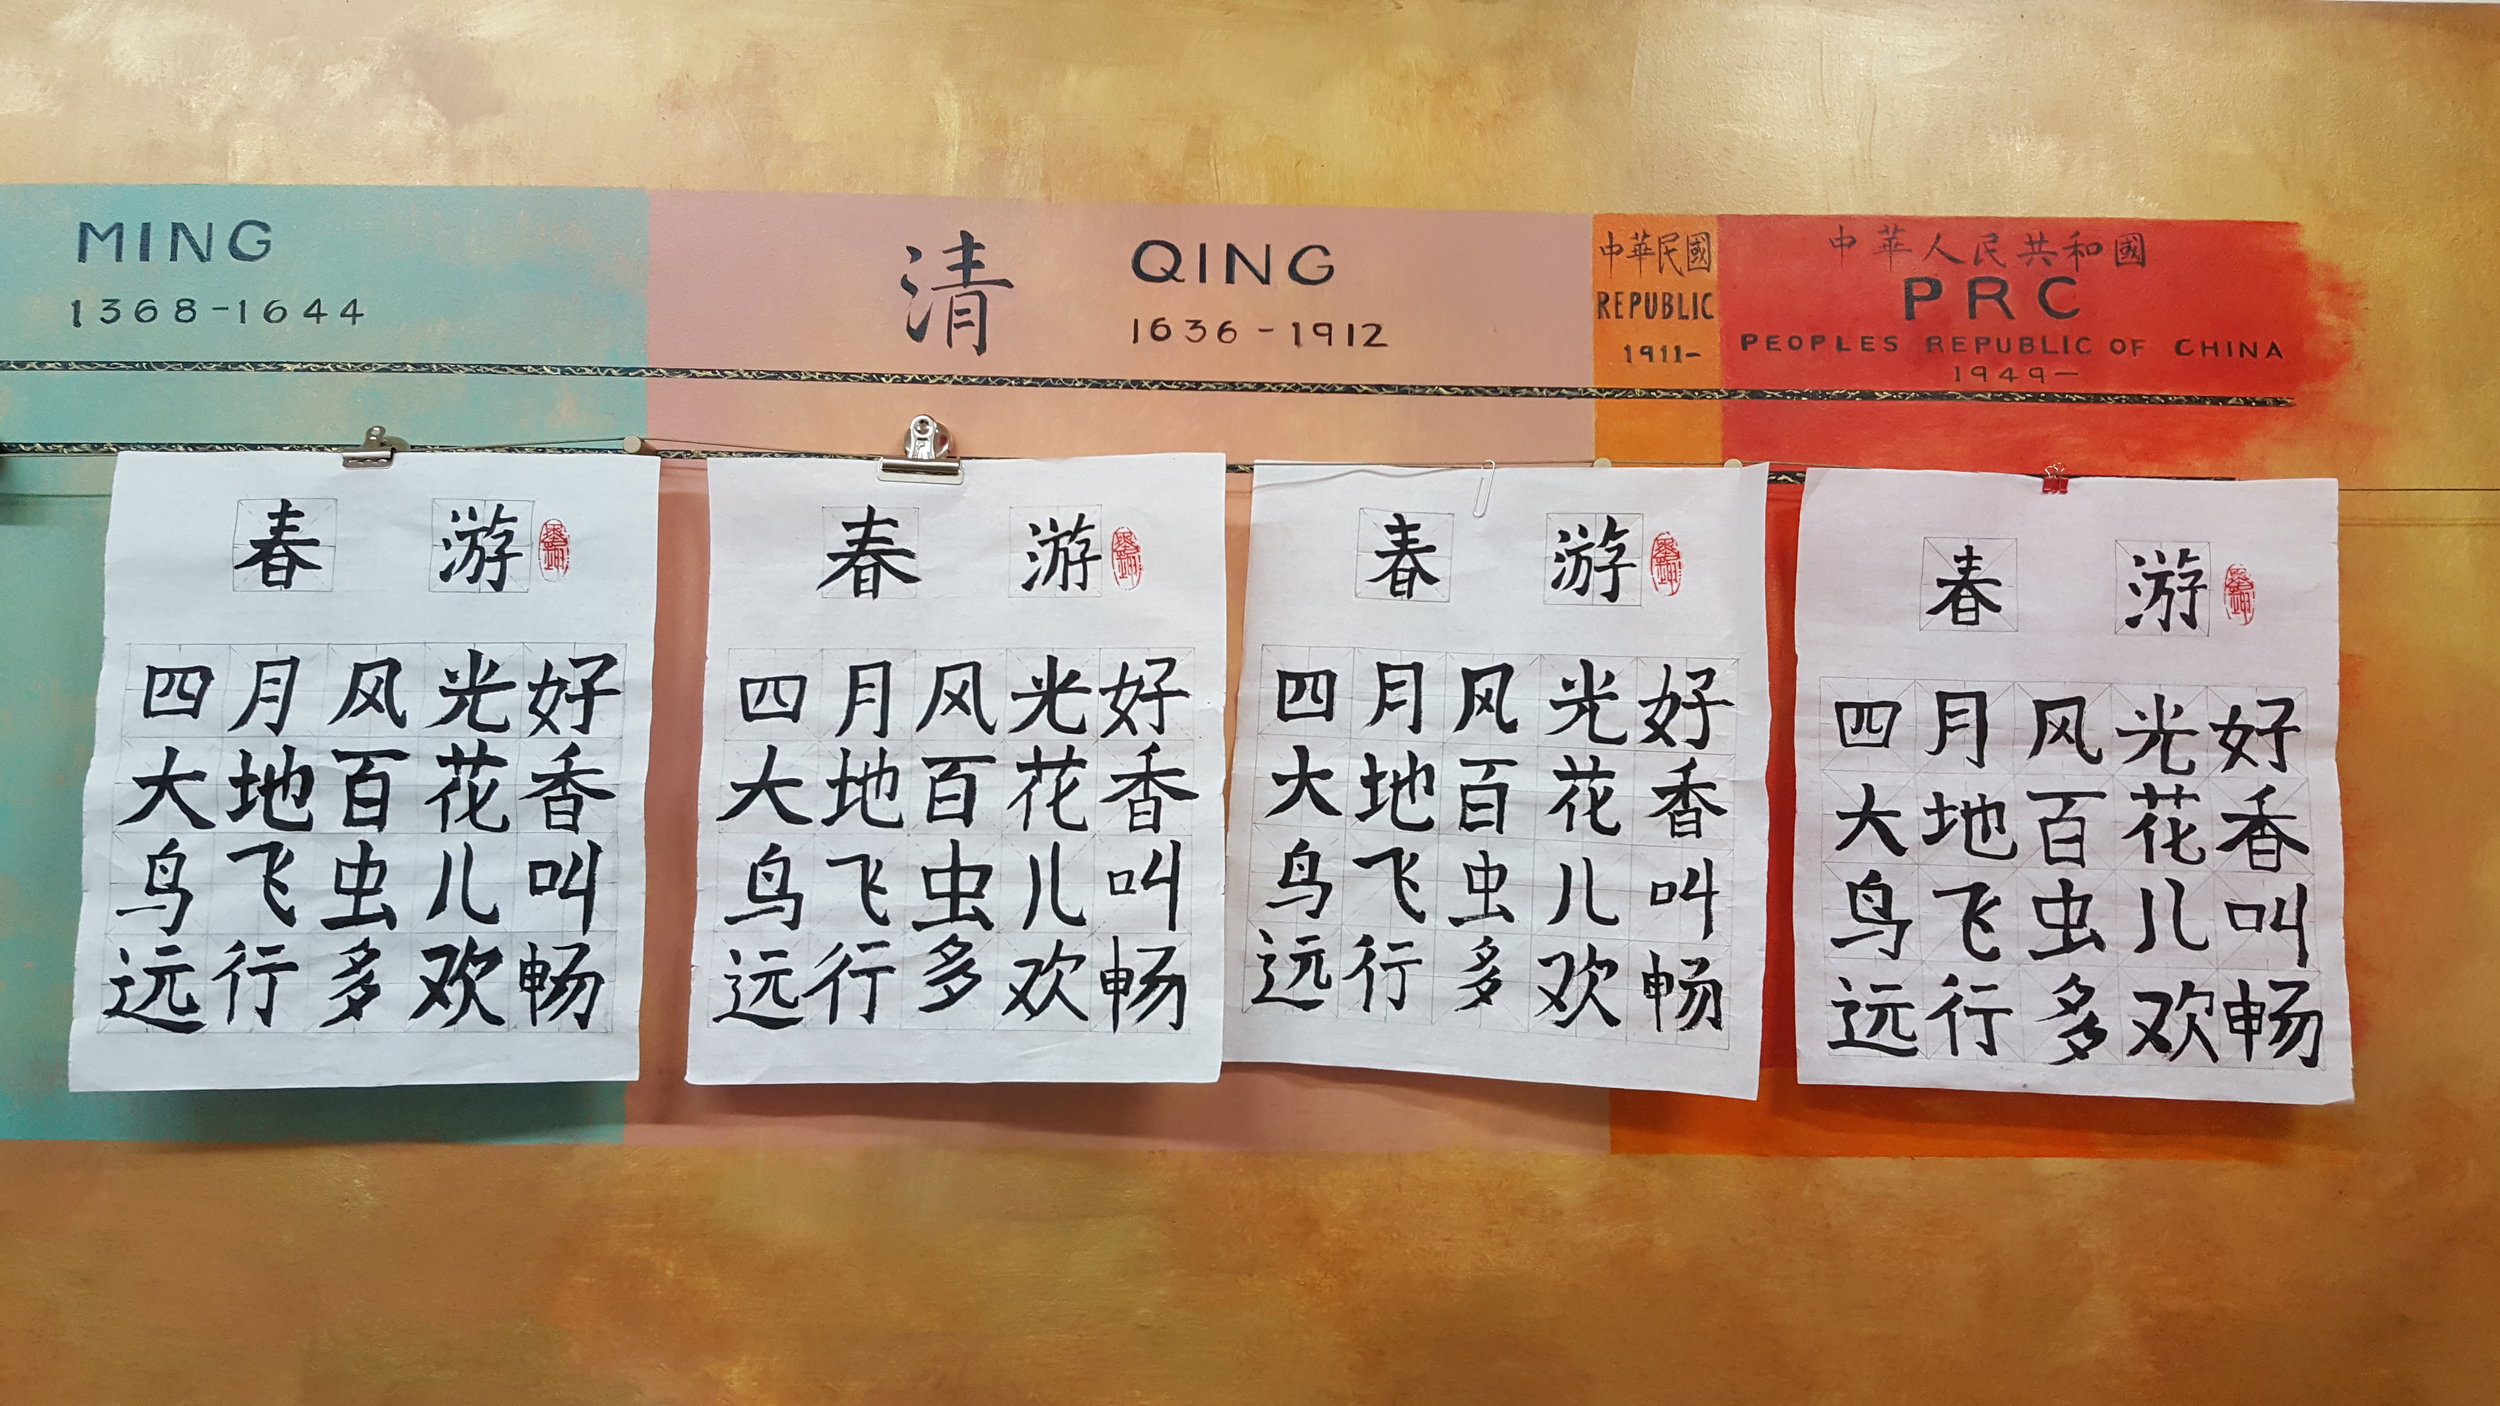 MING
1368-1644
清
QING
1636-1912
中華民國
REPUBLIC
1911-
中華人民共和國
PRC
PEOPLES REPUBLIC OF CHINA
1949-
春游
四月风光好
大地百花香
鸟飞虫儿叫
远行多欢畅
春游
四月风光好
大地百花香
鸟飞虫儿叫
远行多欢畅
春游
四月风光好
大地百花香
鸟飞虫儿叫
远行多欢畅
春游
四月风光好
大地百花香
鸟飞虫儿叫
远行多欢畅